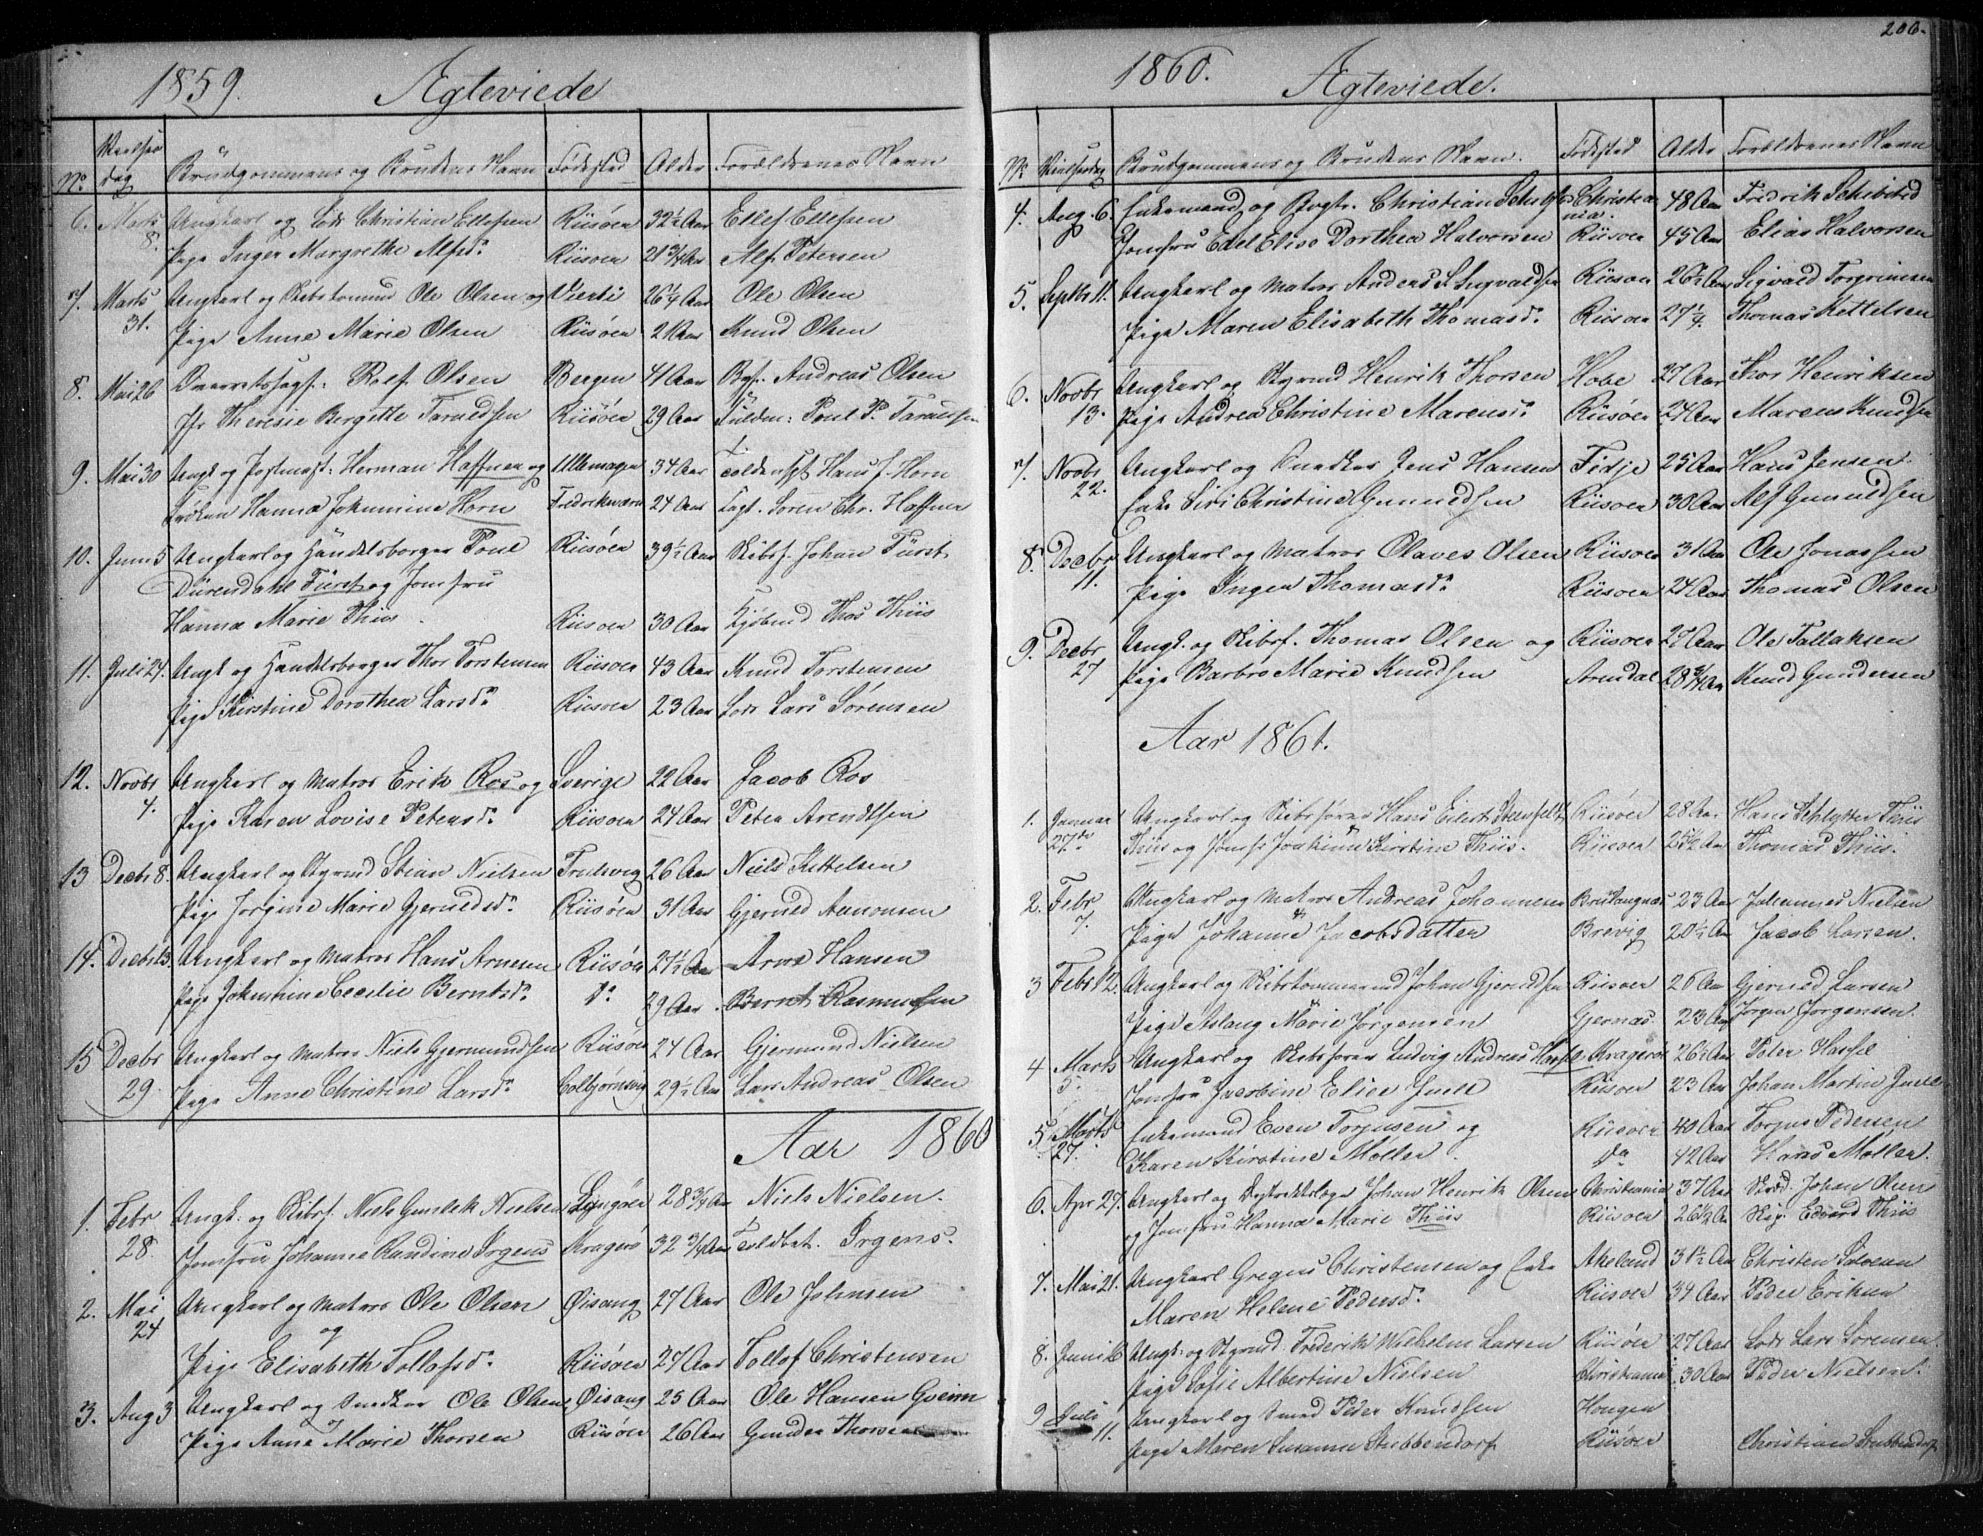 1859. Ægteviede
No Vielses dag Brudgommens og Brudens Navn Fødested Alder Forældrenes Navn
6. Marts 8. Ungkarl og Lods Christian Ellefsen Riisøer 32½ Aar Ellef Ellefsen
Pige Inger Margrethe Alfsd. Riisøer 20¾ Aar Alf Petersen
7. Marts 31. Ungkarl og Skibstømmd Ole Olsen og Ole Olsen
Pige Anne Marie Olsen Riisøer Knud Olsen
8. Mai 26 Rolf Olsen Bergen 41 Aar Andreas Olsen
Jfr Theresie Bergitte Riisøer 29 Aar Poul P.
9. Mai 30 Ungk og Postmest: Herman Haffner og 34 Aar Hans J. Horn
Frøken Hanna Johannine Horn Fredriksværn 24 Aar Capt. Søren Chr. Haffner
10. Juni 5 Ungkarl og Handelsborger Poul Riisøer 39½ Aar Skibsf. Johan Fürst
Dürendahl Fürst og Jomfru
Hanna Marie Thiis Riisøer 30 Aar Kjøbmd Thos Thiis
11. Juli 24. Ungk og Handelsborger Thor Torstensen Riisøer 43 Aar Knud Torstensen
Pige Kirstine Dorothea Larsd. Riisøer 23 Aar Lods Lars Sørensen
12. Novbr 4. Ungkarl og Matros Erik Ros og Sverige 22 Aar Jacob Ros
Pige Karen Lovise Petersd. Riisøer 24 Aar Peter Arendtsen
13 Decbr 8. Ungkarl og Styrmd Stian Nielsen 26 Aar Niels Kittelsen
Pige Jorgine Marie Gjerulds. Riisøer 31 Aar Gjeruld Aanonsen
14. Decbr 13. Ungkarl og Matros Hans Arnesen Riisøer Arne Hansen
Pige Johannine Cecilie Berntsd. Do 29 Aar Bernt Rasmussen
15 Decbr 29. Ungkarl og Matros Niels Gjermundsen Riisøer 24 Aar Gjermund Nielsen
Pige Anne Christine Larsd. 29½ Aar Lars Andreas Olsen
Aar 1860
1. Febr 28. Ungk. og Skibsf. Niels Gundik Nielsen Lyngøer 28¾ Aar Niels Nielsen.
Jomfru Johanne Randine Irgens Kragerø 32¾ Aar Toldbet. Irgens.
2. Mai 24 Ungkarl og Matros Ole Olsen Øisang 27 Aar Ole Johnsen
og
Pige Elisabeth Tollefsd. Riisøer 27 Aar Tollof Christensen
3. Aug 3 Ungkarl og Snedker Ole Olsen Øisang 25 Aar Ole Hansen
Pige Anne Marie Thorsen Riisøer 26 Aar Gunder Thorsen
206.
1860. Ægteviede.
No Vielsesdag Brudgommens og Brudens Navn. Fødested Alder Forældrenes Navn
4. Aug 6. Enkemand og Bogtr. Christian Schibsted Christiania. 48 Aar Fredrik Schibsted
Jomfru Edel Elise Dorthea Halvorsen Riisøer 45 Aar Elias Halvorsen
5. Septbr 11. Ungkarl og Matros Anders S. Sigvaldsen Riisøer 26½ Aar Sigvald Torgrimsen
Pige Maren Elisabeth Thomasd. Riisøer 27¼. Thomas Kettelsen
6. Novbr 13. Ungkarl og Styrmd Henrik Thorsen Hobe 27 Aar Thor Henriksen
Pige Andrea Christine Marensd. Riisøer 24 Aar Marens Knudsen
7. Novbr 22. Ungkarl og Snedker Jens Hansen Fidje 25 Aar Hans Jensen.
Enke Siri Christine Gunuldsen Riisøer 30 Aar Alf Gunuldsen
8. Decbr 11. Ungkarl og Matros Olaves Olsen Riisøer 31 Aar Ole Jonassen
Pige Inger Thomasd. Riisøer 24 Aar Thomas Olsen
9. Decbr 27 Ungk. og Skibsf. Thomas Olsen og Riisøer 27 Aar Ole Tallaksen
Pige Barbro Marie Knudsen Arendal 28¾ Aar Knud Gundersen
Aar 1861.
1. Januar 27de Ungkarl og Skibsfører Hans Eilert Steenfeldt Riisøer 28 Aar. Hans Schlytter Thiis
Thiis og Jomfr Joakime Kirstine Thiis. Riisøer 25½ Aar Thomas Thiis.
2. Febr 7. Ungkarl og Matros Andreas Johannesen 23 Aar Johannes Nielsen
Pige Johanne Jacobsdatter Brevig 20½ Aar Jacob Larsen.
3 Febr 12. Ungkarl og Skibstømmermd Johan Gjeruldsen Riisøer 26 Aar Gjeruld Larsen
Pige Aslaug Marie Jørgensen Gjernæs. 23 Aar Jørgen Jørgensen.
4 Marts 5. Ungkarl og Skibsfører Ludvig Andreas Hassel Kragerø 26½ Aar Peter Hassel
Jomfru Jacobine Elise Juell Riisøer 23 Aar Johan Martin Juell
5. Marts 27. Enkemand Even Torjusen og Riisøer 40 Aar Torjus Pedersen
Karen Kirstine Møller. Do 42 Aar Hans Møller.
6. Apr 27. Ungkarl og Distriktslæge Johan Henrik Olsen Christiania 37 Aar Johan Olsen
og Jomfru Hanna Marie Thiis Riisøer 26½ Aar Edvard Thiis
7. Mai 21. Ungkarl Gregus Christensen og Enke Akeland 31½ Aar Christen
Maren Helene Pedersd. Riisøer 39 Aar Peder Eriksen
8. Juni Ungk. og Styrmd. Frederik Wilhelm Larsen Riisøer 27 Aar Lods Lars Sørensen
Pige Sofie Albertine Nielsen Christiania 30 Aar Peder Nielsen.
9 Juli 11. Ungkarl og Smed Peder Knudsen Hougen
Pige Maren Susanne Stubbendorf Riisøer Christian Stubbendorf